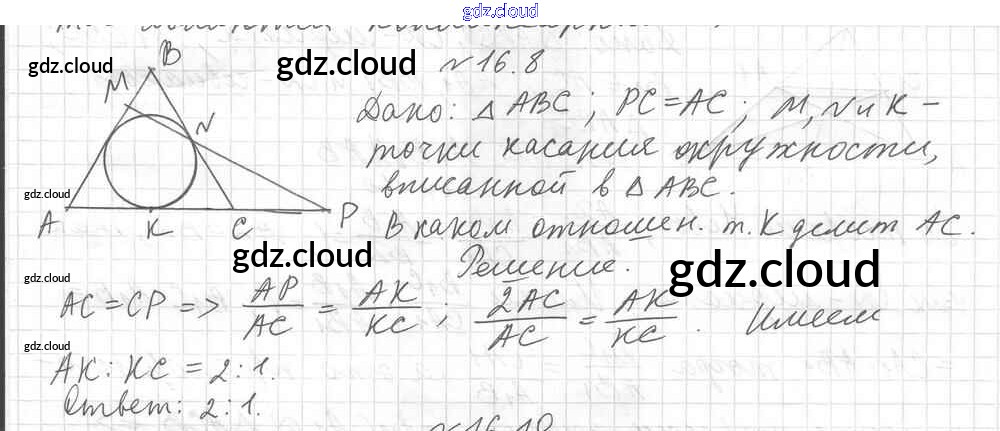 gdz.cloud
gdz.cloud
gdz.cloud
gdz.cloud
N 16.8
B
M
N
A
K
C
P
Дано: △ABC; PC=AC; M, N и K –
точки касания окружности,
вписанной в △ABC.
В каком отношен. т. K делит AC.
gdz.cloud
gdz.cloud
gdz.cloud
Решение.
AC = CP => AP/AC = AK/KC; 2AC/AC = AK/KC. Имеем
gdz.cloud
AK : KC = 2:1.
Ответ: 2:1.